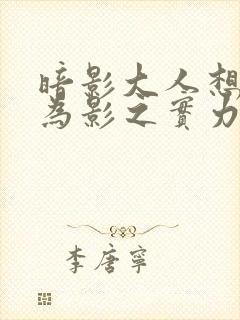 暗影大人想
為影之實力
李唐寧